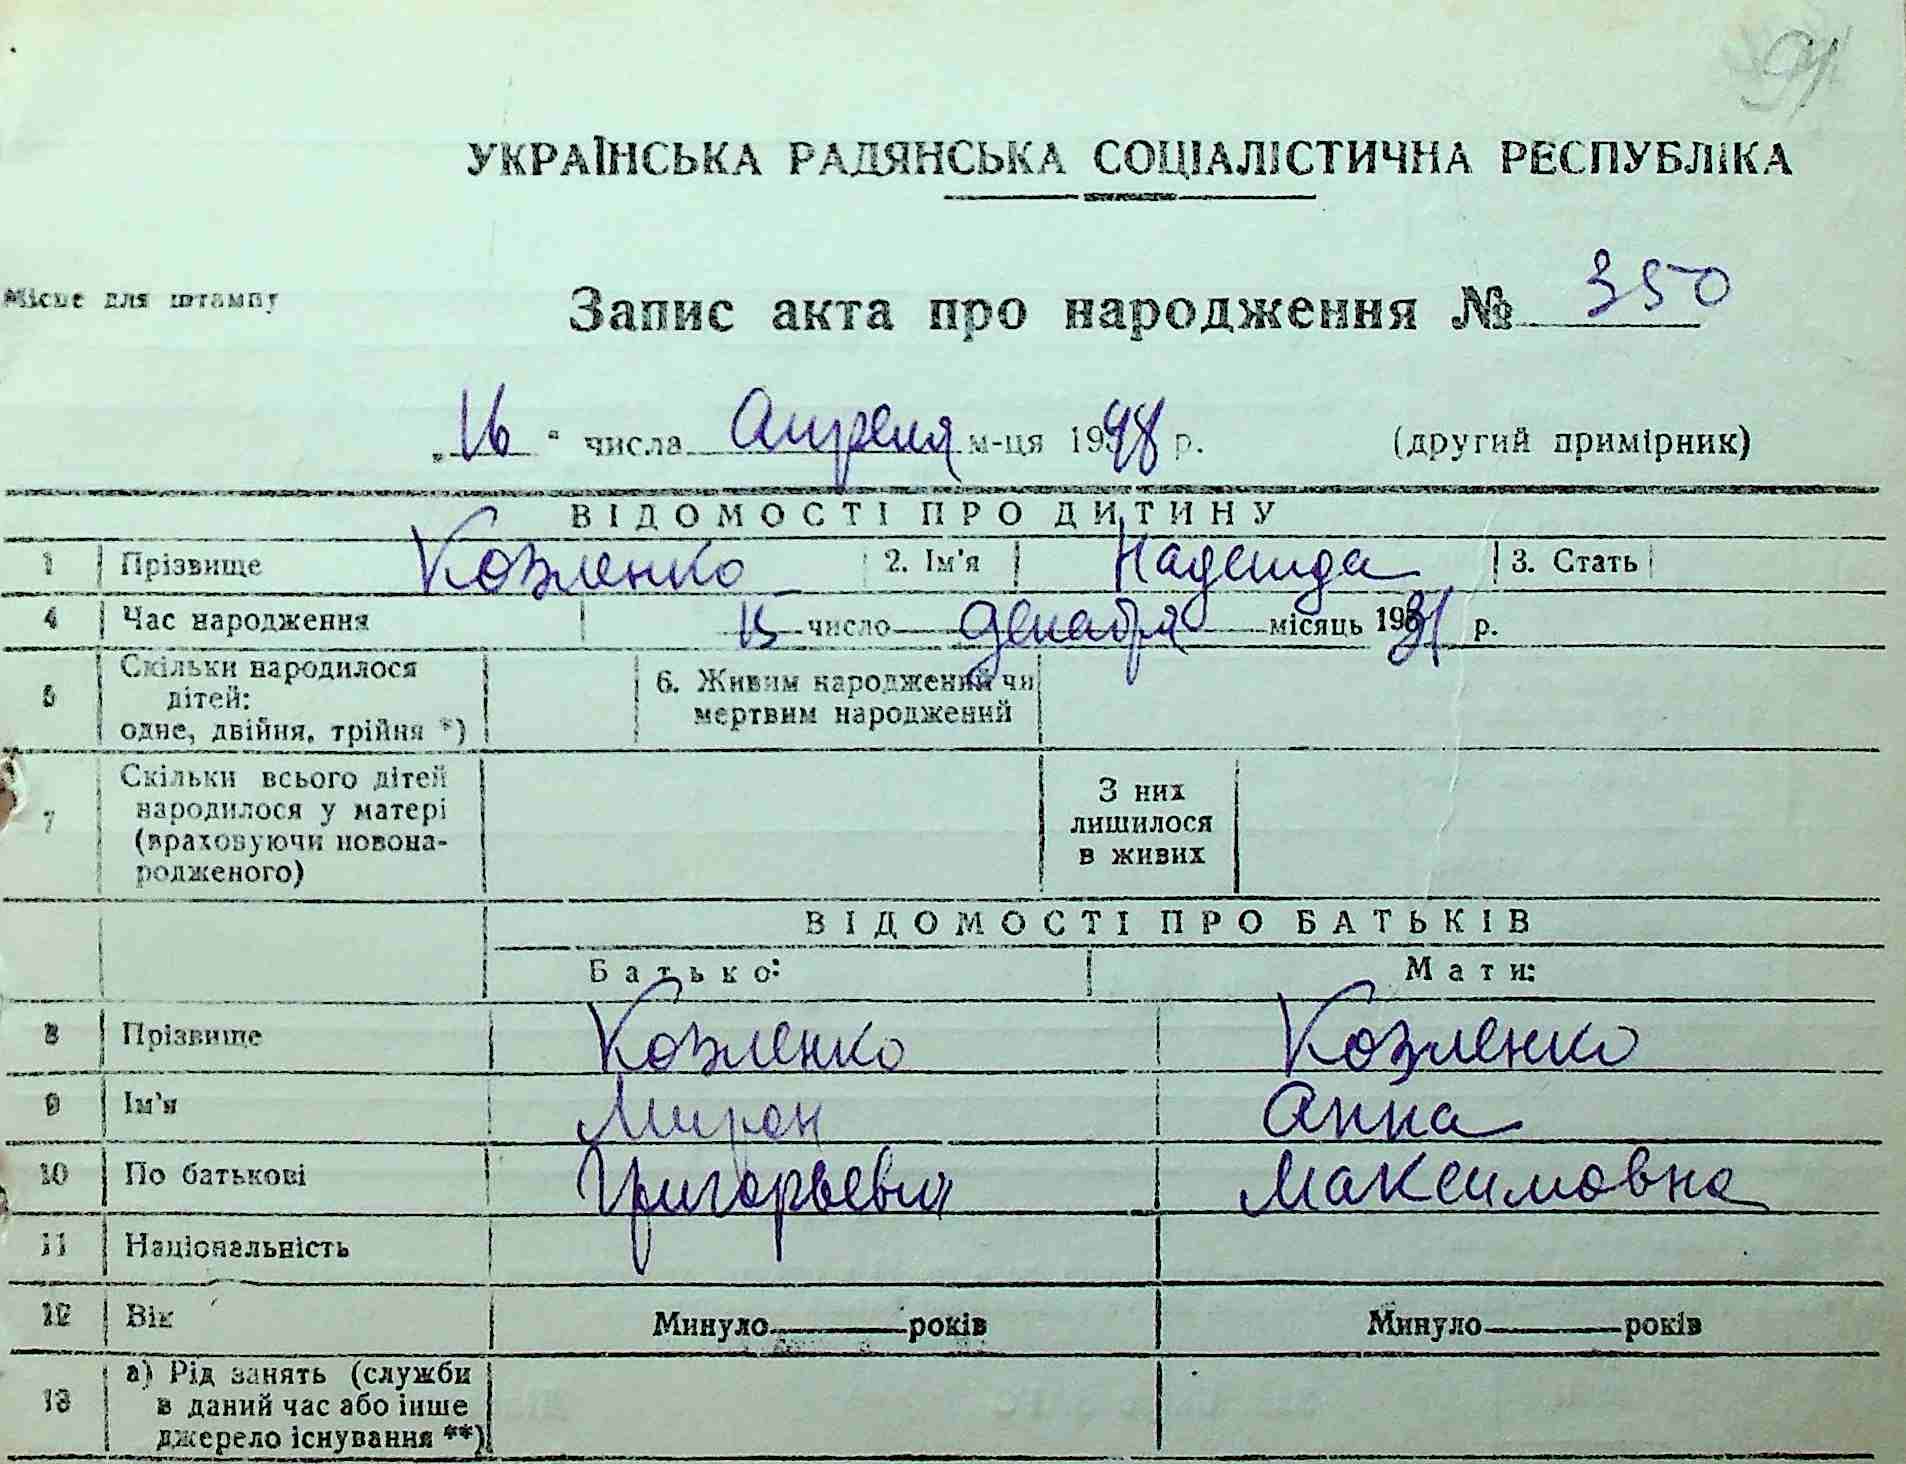 91
УКРАЇНСЬКА РАДЯНСЬКА СОЦІАЛІСТИЧНА РЕСПУБЛІКА
Місце для штампу
Запис акта про народження № 350
„16" числа Апреля м-ця 1948 р. (другий примірник)
ВІДОМОСТІ ПРО ДИТИНУ
1 Прізвище Козленко 2. Ім'я Надежда 3. Стать
4 Час народження 15 число декабря місяць 1931 р.
5 Скільки народилося дітей: одне, двійня, трійня *) 6. Живим народжений чи мертвим народжений
7 Скільки всього дітей народилося у матері (враховуючи новонародженого) З них лишилося в живих
ВІДОМОСТІ ПРО БАТЬКІВ
Батько: Мати:
8 Прізвище Козленко Козленко
9 Ім'я Мирон Анна
10 По батькові Григорьевич Максимовна
11 Національність
12 Вік Минуло років Минуло років
13 а) Рід занять (служби в даний час або інше джерело існування **)